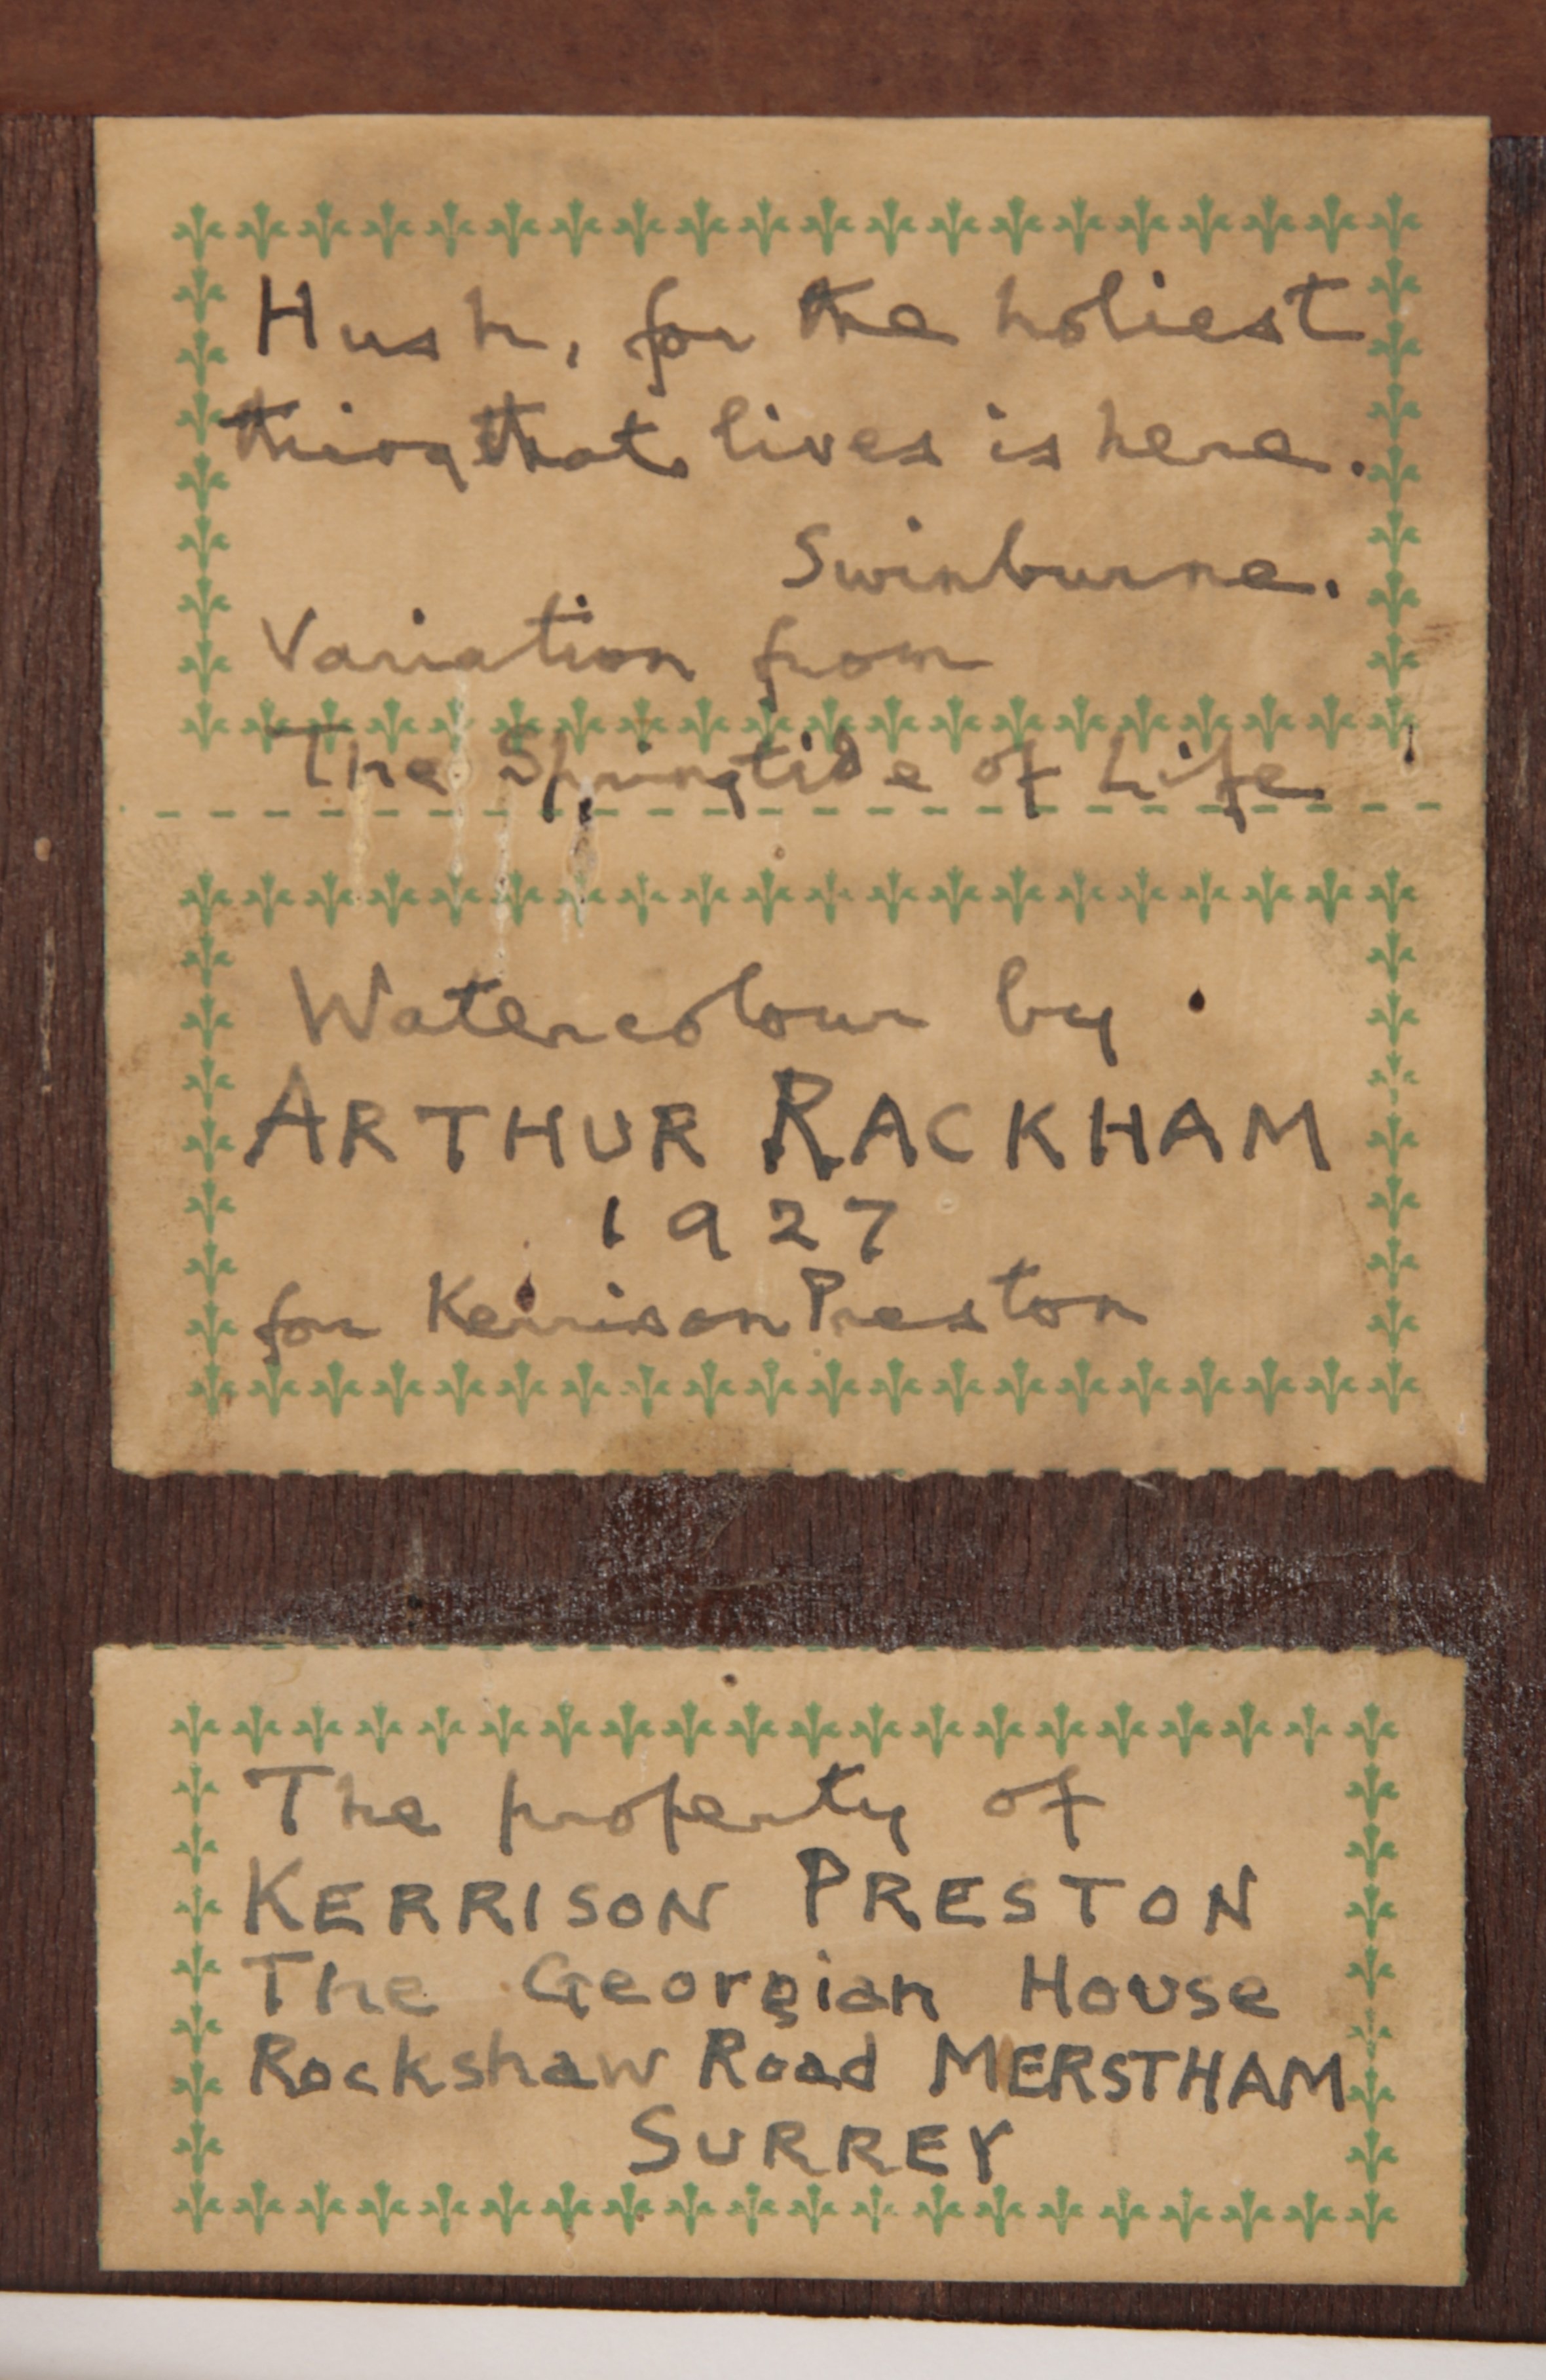 Hush, for the holiest
thing that lives is here.
Swinburne.
Variation from
The Springtide of Life
Watercolour by
ARTHUR RACKHAM
1927
for Kerrison Preston
The property of
KERRISON PRESTON
The Georgian House
Rockshaw Road MERSTHAM
SURREY